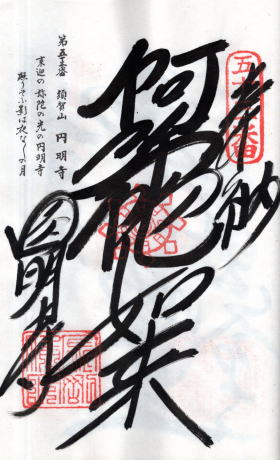 奉納
阿弥陀如来
円明寺
第五十三番 須賀山 円明寺
来迎の弥陀の光の円明寺
照りそふ影は夜な〱の月